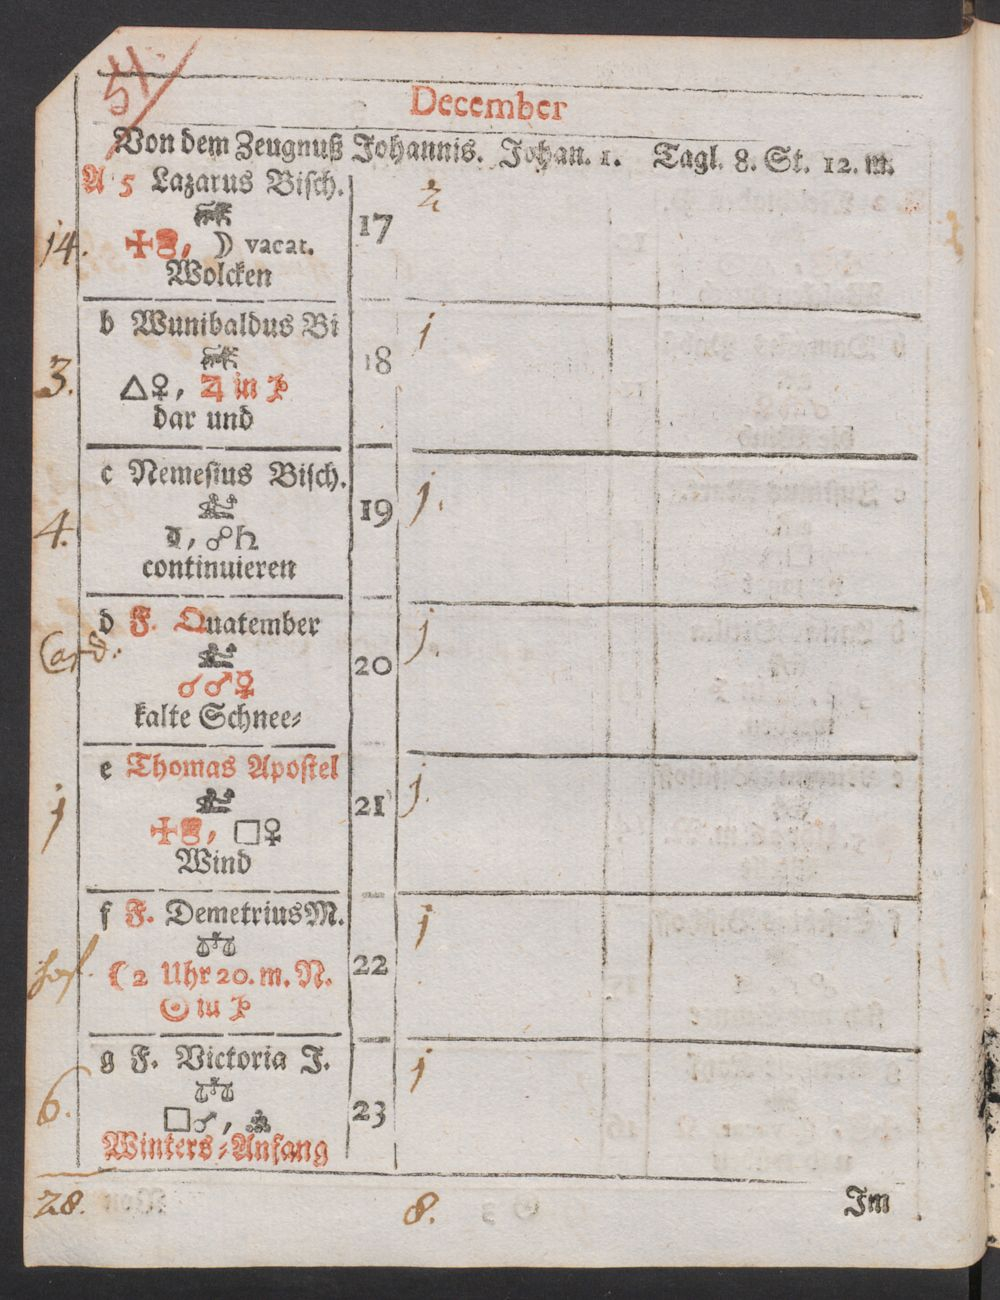 51
December
Von dem Zeugnuß Johannis. Johan. 1. Tagl. 8. St. 12. m.
A 5 Lazarus Bisch.
17
2
14.
☽ vacat.
Wolcken
b Wunibaldus Bi
18
1
3.
△♀, ♃ in ♑
dar und
c Nemesius Bisch.
19
1.
4.
☍♄
continuieren
d F. Quatember
20
1.
☌♂☿
kalte Schnee⸗
e Thomas Apostel
21
1.
1
□♀
Wind
f F. Demetrius M.
22
1
☾ 2 Uhr 20. m. N.
☉ in ♑
g F. Victoria J.
23
1
6.
□♂,
Winters⸗Anfang
28.
8.
Im